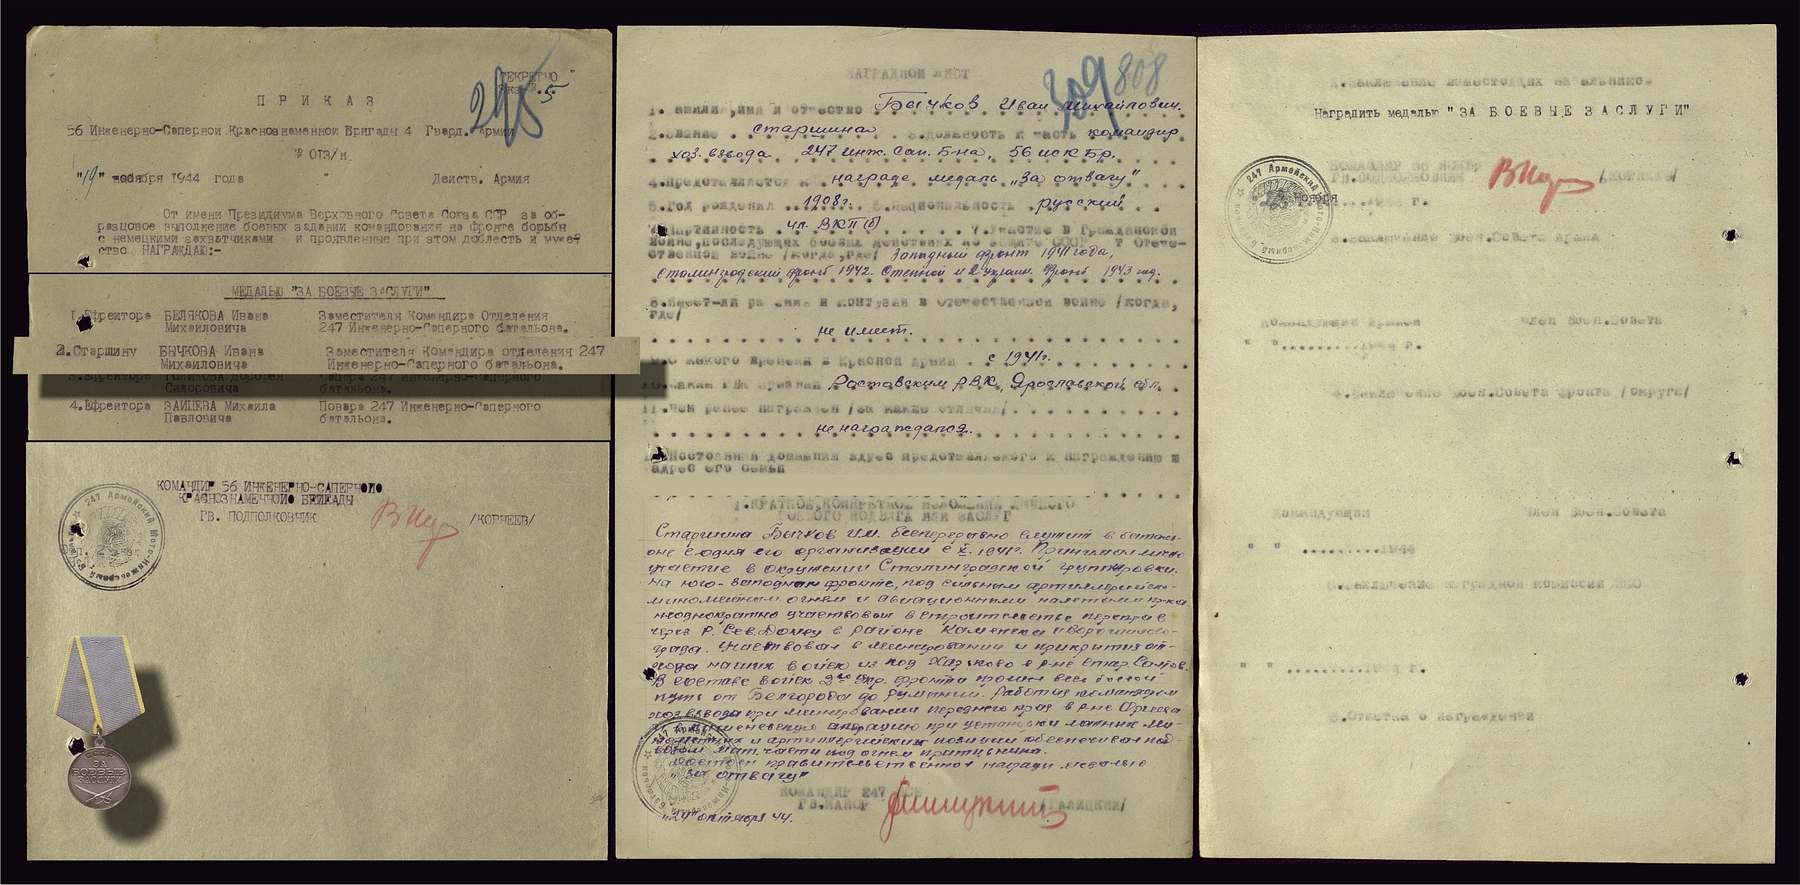 СЕКРЕТНО
Экз. № 5
ПРИКАЗ
56 Инженерно-Саперной Краснознаменной Бригады 4 Гвард. Армии
№ 013/н.
"19" ноября 1944 года Действ. Армия
От имени Президиума Верховного Совета Союза ССР за об-
разцовое выполнение боевых заданий командования на фронте борьбы
с немецкими захватчиками и проявленные при этом доблесть и мужес
ство НАГРАЖДАЮ:-
МЕДАЛЬЮ "ЗА БОЕВЫЕ ЗАСЛУГИ"
1. Ефрейтора БЕЛЯКОВА Ивана Заместителя Командира Отделения
Михайловича 247 Инженерно-Саперного батальона.
2. Старшину БЫЧКОВА Ивана Заместителя Командира отделения 247
Михайловича Инженерно-Саперного батальона.
3. Ефрейтора Сапера 247 Инженерно-Саперного
Сидоровича батальона.
4. Ефрейтора ЗАЙЦЕВА Михаила Повара 247 Инженерно-Саперного
Павловича батальона.
КОМАНДИР 56 ИНЖЕНЕРНО-САПЕРНОЙО
КРАСНОЗНАМЕННОЙО БРИГАДЫ
ГВ. ПОДПОЛКОВНИК /КОРНЕЕВ/
247 Армейский Мото-Инженерный Батальон
СССР
ЗА
БОЕВЫЕ
ЗАСЛУГИ
НАГРАДНОЙ ЛИСТ
309 808
1. Фамилия, имя и отчество Бычков Иван Михайлович.
2. Звание старшина 3. Должность и часть командир
хоз. взвода 247 инж. сап. Б-на, 56 искБр.
4. Представляется к награде медаль "За отвагу"
5. Год рождения 1908г. 6. Национальность русский
Партийность чл. ВКП(б) 7. Участие в Гражданской
войне, последующих боевых действиях по защите СССР и Отече-
ственной войне /когда, где/ Западный фронт 1941 года,
Сталинградский фронт 1942. Степной и 2 украин. фронт 1943 год.
8. Имеет-ли ранения и контузии в отечественной войне /когда,
где/
не имеет.
9. С какого времени в Красной Армии с 1941г.
10. Каким РВК призван Ростовским РВК, Ярославской обл.
11. Чем ранее награжден /за какие отличия/
не награждался.
12. Постоянный домашний адрес представляемого к награждению и
адрес его семьи
1. КРАТКОЕ, КОНКРЕТНОЕ ИЗЛОЖЕНИЕ ЛИЧНОГО
БОЕВОГО ПОДВИГА ИЛИ ЗАСЛУГ
Старшина Бычков И.М. беспрерывно служит в баталь-
оне со дня его организации с X. 1941г. Принимал личн
участие в окружении Сталинградской группировки.
На юго-западном фронте, под сильным артиллерийско-
минометным огнем и авиационными налетами пр-ка
неоднократно участвовал в строительстве переправ
через р. Сев. Донец в районе Каменска и Ворошилов-
града. Участвовал в минировании и прикрытия от-
хода наших войск из под Харькова в р-не стар. Салтов.
В составе войск 2го Укр. фронта прошел весь боевой
путь от Белгорода до Румынии. Работая командиром
хоз взвода при минировании переднего края в р-не
операцию при установки минных
и артиллерийских позиции обеспечивал под-
возом мат. части под огнем противника.
Достоин правительственной награды медалью
"За отвагу"
КОМАНДИР 247
ГВ. МАЙОР /ГАЛИЦКИЙ/
247 Армейский Мото-Инженерный Батальон
октября 44.
2. Заключение вышестоящих начальников
Наградить медалью "ЗА БОЕВЫЕ ЗАСЛУГИ"
КОМАНДИР 56
ГВ. ПОДПОЛКОВНИК /КОРНЕЕВ/
247 Армейский Мото-Инженерный Батальон
ноября
1944 г.
3. Заключение Воен. Совета Армии
Командующий Армией Член Воен. Совета
" " 1944 г.
4. Заключение Воен. Совета фронта /округа/
Командующий Член Воен. Совета
" " 1944
5. Заключение наградной комиссии НКО
" " 194 г.
6. Отметка о награждении